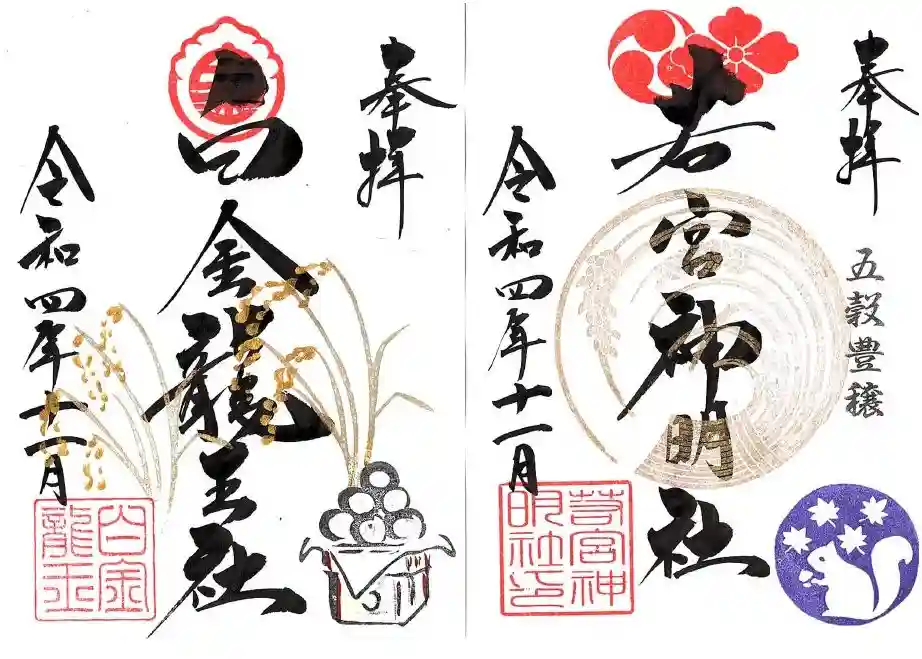 奉拝
五穀豊穣
若宮神明社
若宮神明社印
令和四年十一月
奉拝
白金龍王社
令和四年十一月
白金龍王